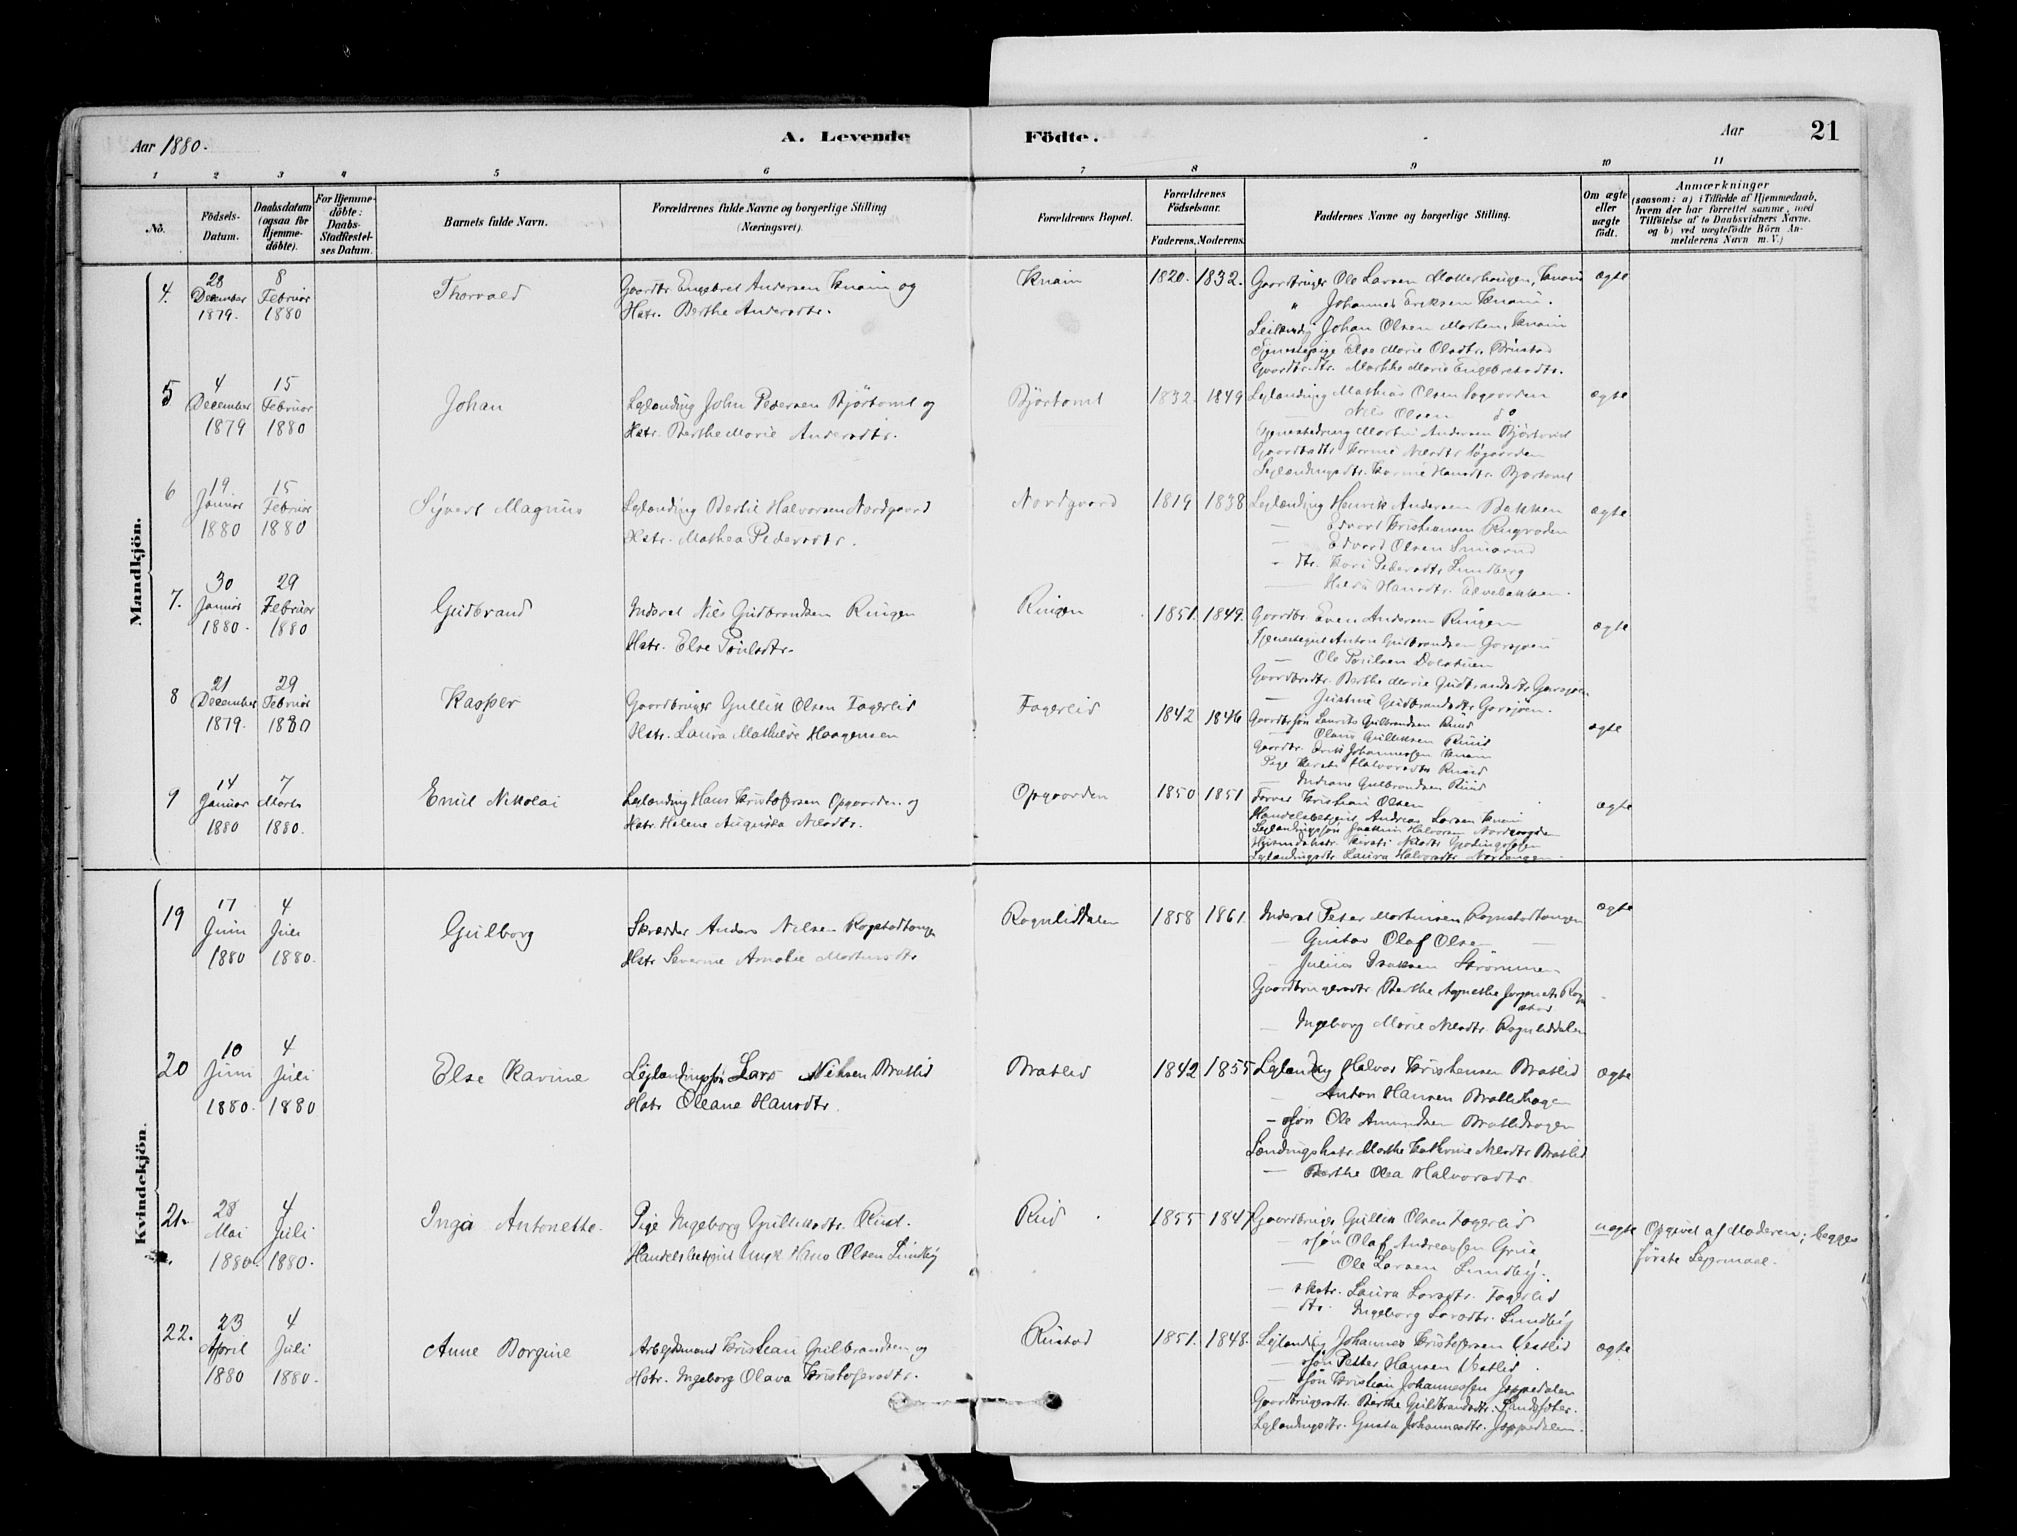 Aar 1880.
A. Levende
Födte.
Aar
21
1 2 3 4 5 6 7 8 9 10 11
No.
Födsels-
Datum.
Daabsdatum
(ogsaa for
Hjemme-
döbte).
For Hjemme-
döbte:
Daabs-
Stadfæstel-
ses Datum.
Barnets fulde Navn.
Forældrenes fulde Navne og borgerlige Stilling
(Næringsvei).
Forældrenes Bopæl.
Forældrenes
Födselsaar.
Faderens. Moderens.
Faddernes Navne og borgerlige Stilling.
Om ægte
eller
uægte
födt.
Anmærkninger
(saasom: a) i Tilfælde af Hjemmedaab,
hvem der har forrettet samme, med
Tilföielse af to Daabsvidners Navne.
og b) ved uægtefödte Börn An-
melderens Navn m. V.)
Mandkjön.
4.
28
December
1879.
8
Februar
1880
Thorvald
Gaardbr Engebret Andersen Knain og
Hstr. Berthe Andersdtr.
Knain
1820. 1832.
Gaardbruger Ole Larsen Knain
" Johannes Eriksen Knain.
Johan Olsen Knain
Tjenestepige Else Marie Olsdtr.
Gaardbrdtr. Marthe Marie Engebretsdtr.
ægte
5
4
December
1879
15
Februar
1880
Johan
Leylænding John Pedersen Bjørtomt og
Hstr. Berthe Marie Andersdtr.
Bjørtomt
1832. 1849
Leylænding Mathias Olsen
Nils Olsen do
Martin Andersen Bjørtomt
Leylændingsdtr. Karine Hansdtr. Bjørtomt
ægte
6
19
Januar
1880
15
Februar
1880
Syvert Magnus
Leylænding Bertil Halvorsen Nordgaard
Hstr. Mathea Pedersdtr.
Nordgaard
1819 1838
Leylænding Henrik Andersen Bakken
— Edvard Kristiansen
— Edvard Olsen
- dtr. Kari Pedersdtr Lundberg
— Hansdtr.
ægte
7.
30
Januar
1880.
29
Februar
1880
Gudbrand
Inderst Nils Gudbrandsen Ringen
Hstr. Else Paulsdtr.
Ringen
1851. 1849.
Gaardbr Even Andersen Ringen
Anton Gulbrandsen Garsjøen
— Ole Paulsen
Gaardbrdtr. Berthe Marie Gudbrandsdtr Garsjøen
— Justine Gudbrandsdtr Garsjøen.
ægte
8
21
December
1879.
29
Februar
1880
Kasper
Gaardbruger Gullik Olsen Fagerlid
Hstr. Laura Mathilde Haagensen
Fagerlid
1842 1846
Gaardbrsøn Laurits Gulbrandsen Ruud
— Olaus Gulliksen Ruud
Gaardbr. Johannessen Knain
Pige Kersti Halvorsdtr Ruud
— Indiane Gulbrandsen Ruud
ægte
9
14
Januar
1880
7
Marts
1880.
Emil Nikolai
Leylænding Hans Kristofersen Opgaarden og
Hstr. Helene Augusta Nilsdtr.
Opgaarden
1850 1851
Farver Kristian Olsen
Handelsbetjent Andreas Larsen Knain
Leylændingssøn Halvorsen
Kirsti Nilsdtr
Leylændingsdtr Laura Halvorsdtr Nordengen
ægte
Kvindekjön.
19
17
Juni
1880
4
Juli
1880.
Gulborg
Skrædder Anders Nilsen Rogstadtangen
Hstr Severine Amalie Martinsdtr
Rognliddalen
1858 1861
Inderst Peter Martinsen Rogstadtangen
— Gustav Olaf Olsen —
— Julius Isaksen Strømmen
Gaardbrugersdtr Berthe Agnethe
— Ingeborg Marie Nilsdtr. Rognliddalen
ægte
20
10
Juni
1880.
4
Juli
1880
Else Karine
Leylændingssøn Lars Nilsen Bratlid
Hstr Oleane Hansdtr.
Bratlid
1842 1855
Leylænding Halvor Kristensen Bratlid
Anton Hansen Bratlihagen
– søn Ole Amundsen Bratlidhagen
Marthe Kathrine Nilsdtr Bratlid
— Berthe Olea Halvorsdtr.
ægte
21.
28
Mai
1880.
4
Juli
1880.
Inga Antonette.
Pige Ingeborg Gulliksdtr. Ruud.
Handelsbetjent Ungk Hans Olsen Lundby
Rud
1855 1847
Gaardbruger Gullik Olsen Fagerlid
— søn Olaf Andreassen Grue
— Ole Larsen Lundby.
— Laura Larsdtr. Fagerlid
— dtr. Ingeborg Larsdtr. Lundby
uægte
Opgivet af Moderen; begges
første Leiermaal.
22.
23
April
1880
4
Juli
1880.
Anne Borgine
Arbejdsmand Kristian Gulbrandsen og
Hstr. Ingeborg Olava Kristofersdtr.
Rustad
1851. 1848.
Leylænding Johannes Kristofersen Vestlid
— søn Petter Hansen Vestlid.
— søn Kristian Johannessen Joppedalen
Gaardbrugersdtr. Berthe Gulbrandsdtr.
Leylændingsdtr. Gusta Johannesdtr. Joppedalen.
ægte